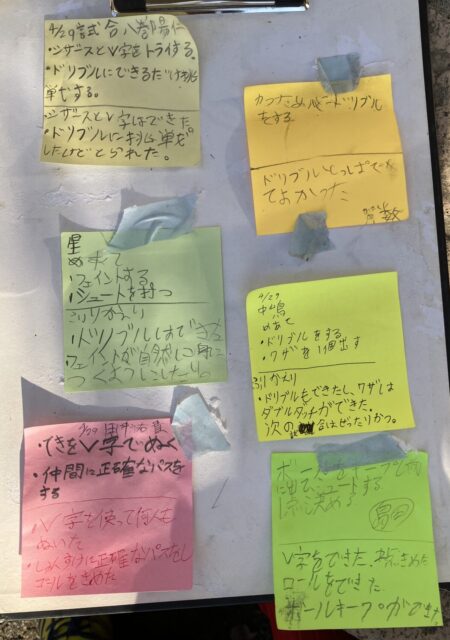 4/29 試合 八巻陽仁
・シザースとV字をトライする。
・ドリブルにできるだけ挑
単でする。
シザースとV字はできた。
・ドリブルに挑単を
したけどとられた。
ドリブル
をする
ドリブルいっぱいで
てよかった
星
めあて
・フェイントする
・シュートを打つ
ふりかえり
・ドリブルは
フェイントが自然に身に
つくようにしたい。
4/29
中嶋
めあて
・ドリブルをする
・ワザを1個出す
ふりかえり
・ドリブルもできたし、ワザは
ダブルタッチができた。
次の 合はぜったいかつ。
4/29
・てきをV字でぬく
・仲間に正確なパスを
する
V字を使って何人も
ぬいた
正確なパスをし
ゴールをきめた
ボールをキープして
シュートする
V字もできた、点きめた
ロールもできた
ボールキープができた